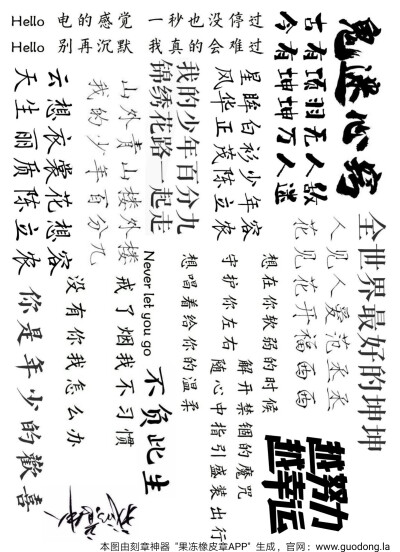 Hello 电的感觉 一秒也没停过
Hello 别再沉默 我真的会难过
鬼迷心窍
古有项羽无人敌
今有坤坤万人迷
星眸白衫少年容
风华正茂陈立农
我的少年百分九
锦绣花路一起走
山外青山楼外楼
我的少年百分九
云想衣裳花想容
天生丽质陈立农
全世界最好的坤坤
人见人爱范丞丞
花见花开福西西
想在你软弱的时候
守护你左右
想唱着给你的温柔
Never let you go
戒了烟我不习惯
没有你我怎么办
你是年少的歡喜
不负此生
解开禁锢的魔咒
随心中指引盛装出行
越努力
越幸运
本图由刻章神器“果冻橡皮章APP”生成，官网：www.guodong.la